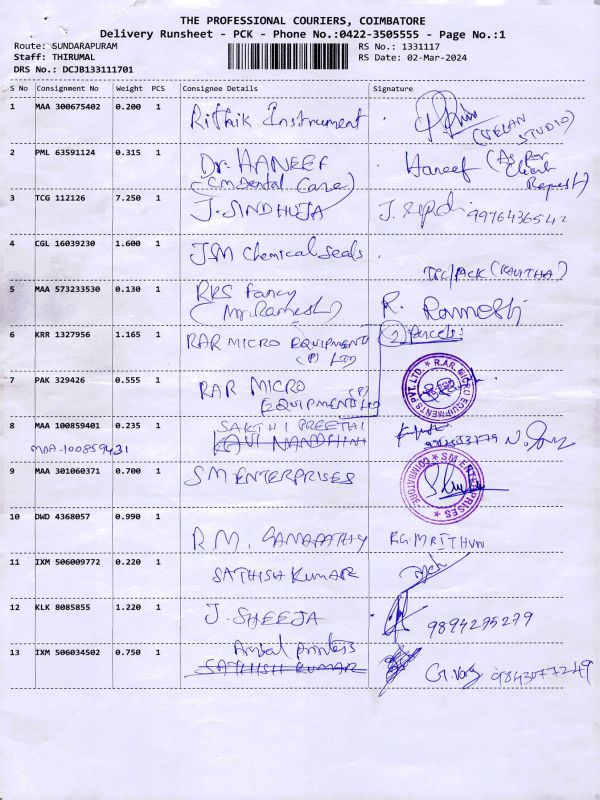 THE PROFESSIONAL COURIERS, COIMBATORE
Delivery Runsheet - PCK - Phone No.:0422-3505555 - Page No.:1
Route: SUNDARAPURAM RS No.: 1331117
Staff: THIRUMAL RS Date: 02-Mar-2024
DRS No.: DCJB133111701
S No Consignment No Weight PCS Consignee Details Signature
1 MAA 300675402 0.200 1 Rithik Instrument (VELAN STUDIO)
2 PML 63591124 0.315 1 Dr. HANEEF Haneef (As Per Client Request)
(CM Dental Care)
3 TCG 112126 7.250 1 J. SINDHUJA J. 9976436542
4 CGL 16039230 1.600 1 J.M Chemical Seals
(KAVITHA)
5 MAA 573233530 0.130 1 RKS Fancy R. Ramesh
(Mr. Ramesh)
6 KRR 1327956 1.165 1 RAR MICRO EQUIPMENT 2 Parcels
(P) LTD
7 PAK 329426 0.555 1 RAR MICRO (P) R.AR. MICRO EQUIPMENTS PVT. LTD
EQUIPMENT LTD
8 MAA 100859401 0.235 1 SAKTHI PREETHI
MAA-100859431 KAVI NANDHINI
9 MAA 301060371 0.700 1 SM ENTERPRISES SM ENTERPRISES COIMBATORE
10 DWD 4368057 0.990 1 R.M. GANAPATHY R.G. MRITHUN
11 IXM 506009772 0.220 1 SATHISH KUMAR
12 KLK 8085855 1.220 1 J. SHEEJA 9894295279
13 IXM 506034502 0.750 1 Ambal printers
SATHISH KUMAR 9843077249